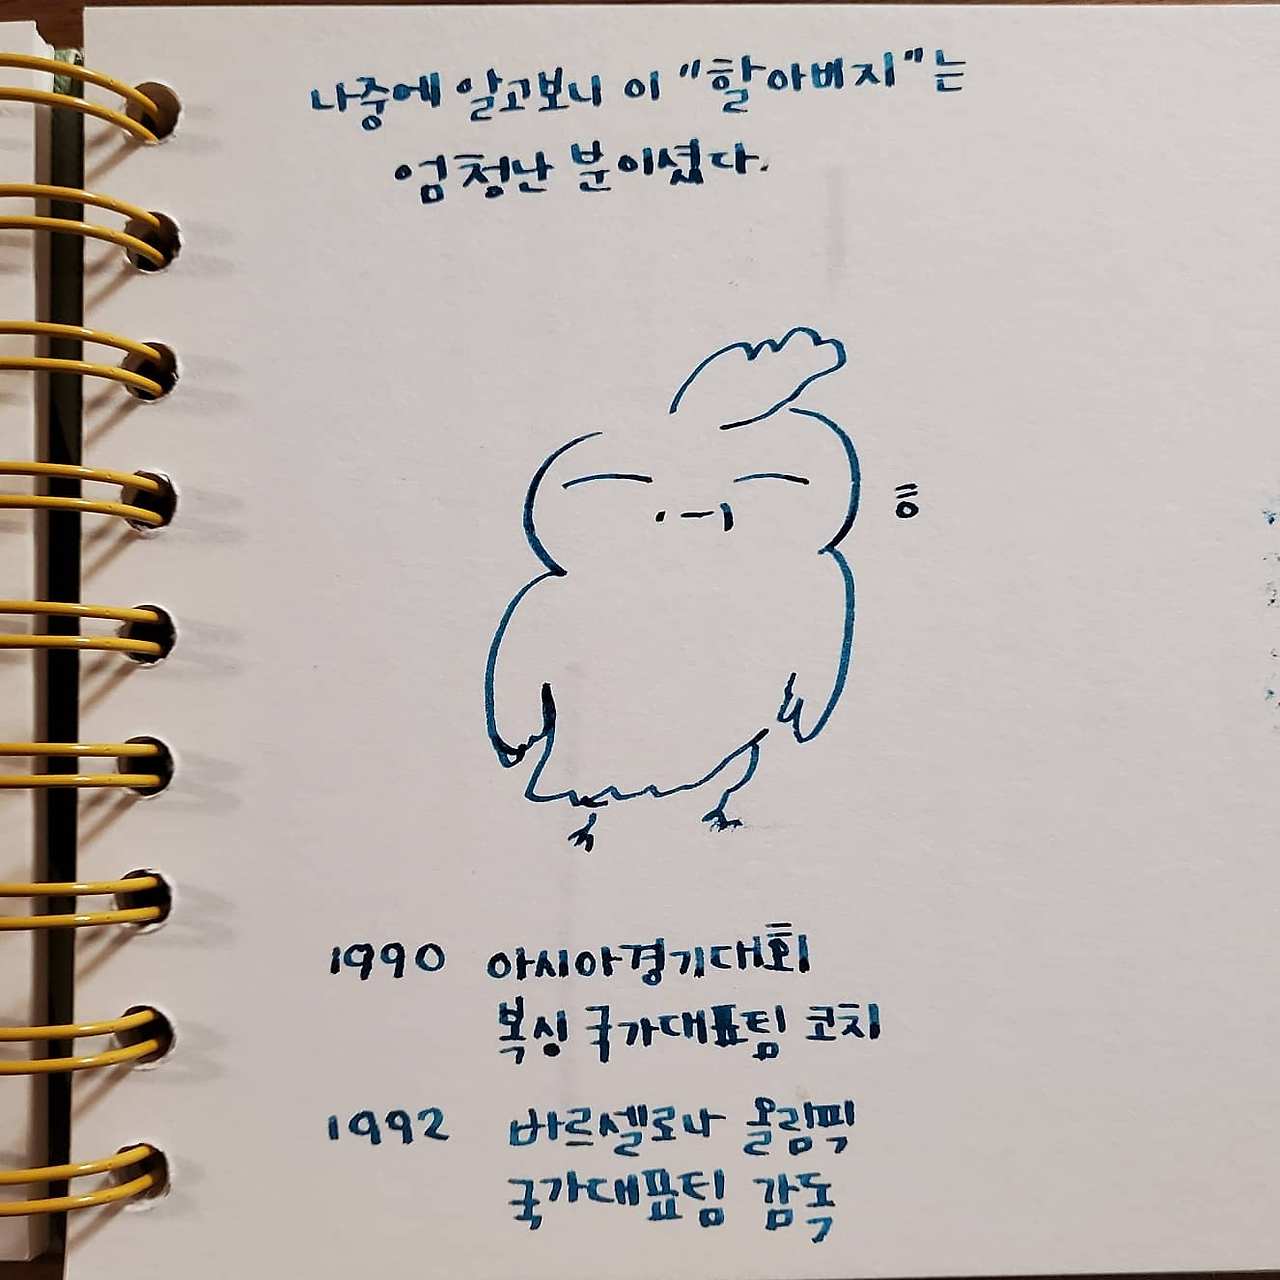 나중에 알고보니 이 "할아버지"는
엄청난 분이셨다.
흥
1990 아시아경기대회
복싱 국가대표팀 코치
1992 바르셀로나 올림픽
국가대표팀 감독